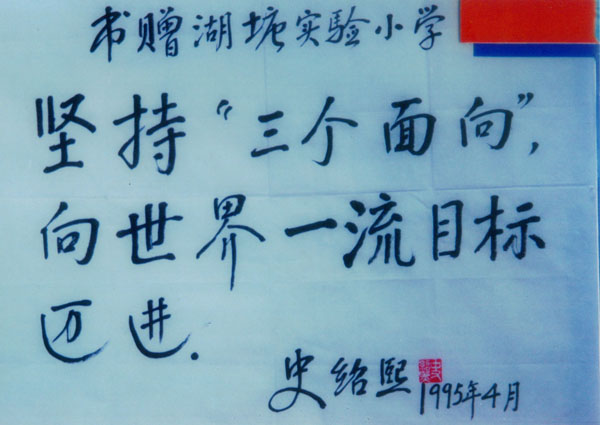 书赠湖塘实验小学
坚持“三个面向”,
向世界一流目标
迈进.
史绍熙
1995年4月